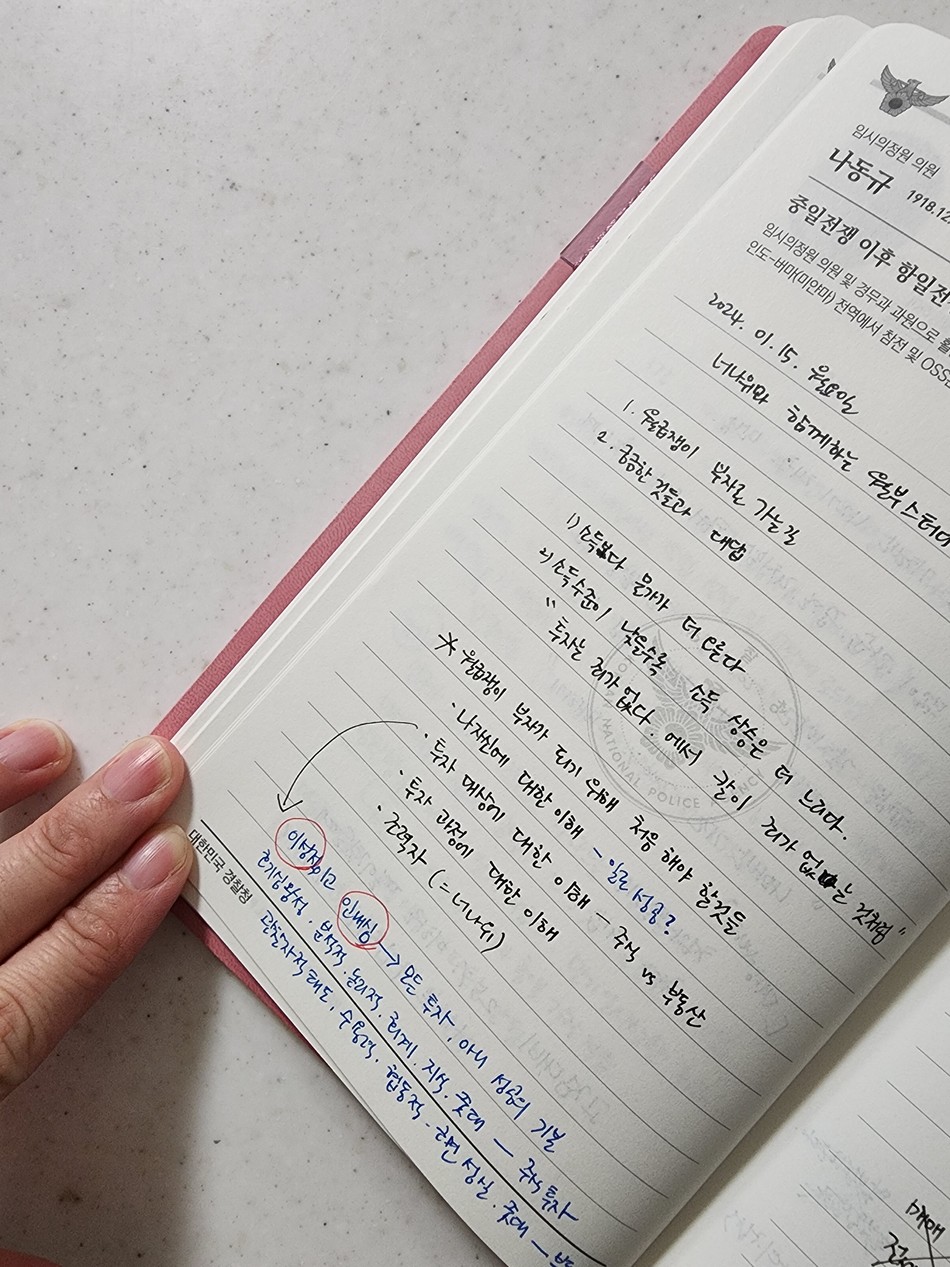 임시의정원 의원
나동규 1918.12.
중일전쟁 이후 항일전
임시의정원 의원 및 경무과 과원으로 활
인도-버마(미얀마) 전역에서 참전 및 OSS
2024. 01. 15. 월요일
너나위와 함께하는 월부스터디
1. 월급쟁이 부자로 가는길
2. 궁금한 것들과 대답
1) 소득보다 물가가 더 오른다
2) 소득수준이 낮을수록 소득 상승은 더 느리다.
"투자는 죄가 없다. 에서 칼이 죄가 없는 것처럼"
※ 월급쟁이 부자가 되기 위해 처음 해야 할것들
· 나자신에 대한 이해 - 일단 성공?
· 투자 대상에 대한 이해 - 주식 vs 부동산
· 투자 과정에 대한 이해
· 조력자 (= 너나위)
이성적이고 인내심 → 모든 투자, 아니 성공의 기본
호기심왕성. 분석적. 논리적. 회계. 지식. 꽃대 - 주식투자
관찰자적태도. 수용적. 협동적. 근면 성실. 꽃대 - 부
대한민국 경찰청
KOREAN NATIONAL POLICE AGENCY
매매